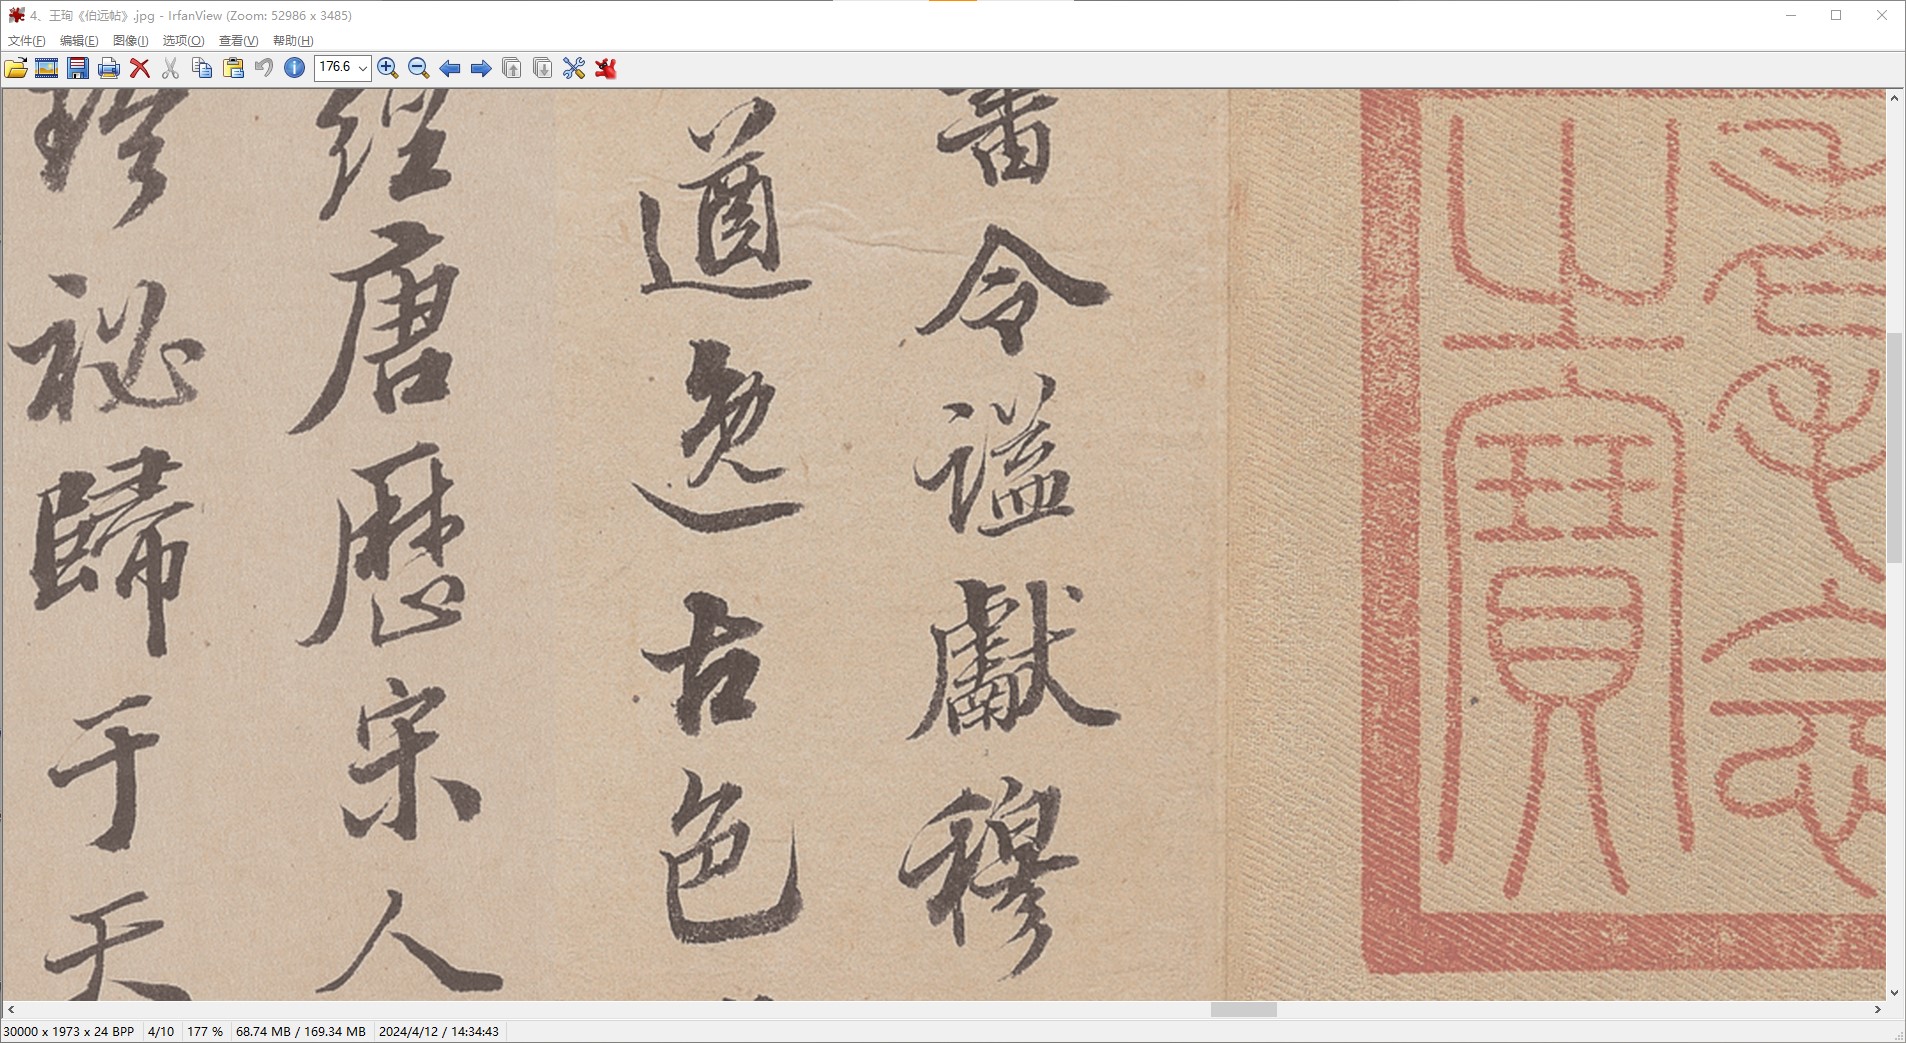 4、王珣《伯远帖》.jpg - IrfanView (Zoom: 52986 x 3485)
文件(F) 编辑(E) 图像(I) 选项(O) 查看(V) 帮助(H)
176.6
番令谥獻穆
遒逸古色
經唐歷宋人
珍祕歸于天
之寶
30000 x 1973 x 24 BPP 4/10 177 % 68.74 MB / 169.34 MB 2024/4/12 / 14:34:43